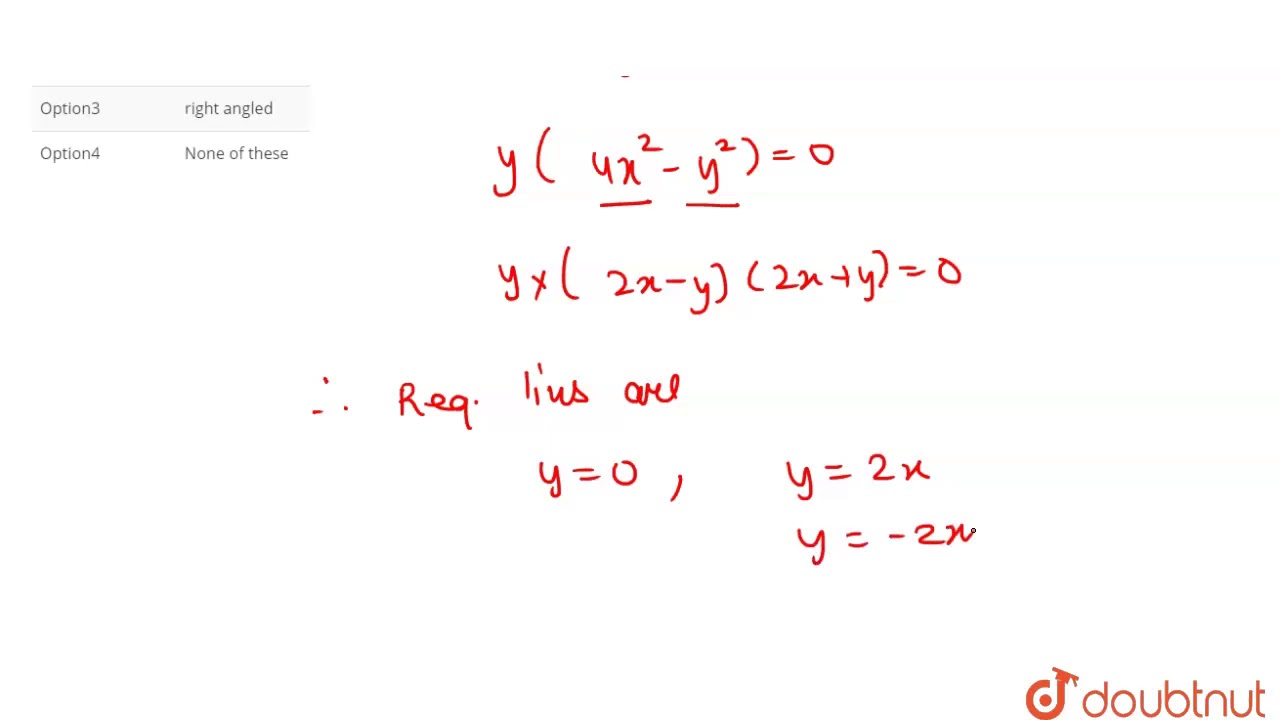 Option3 right angled
Option4 None of these
y( 4x² - y²) = 0
y × ( 2x - y) (2x + y) = 0
∴ Req. lines are
y = 0 , y = 2x
y = - 2x
doubtnut